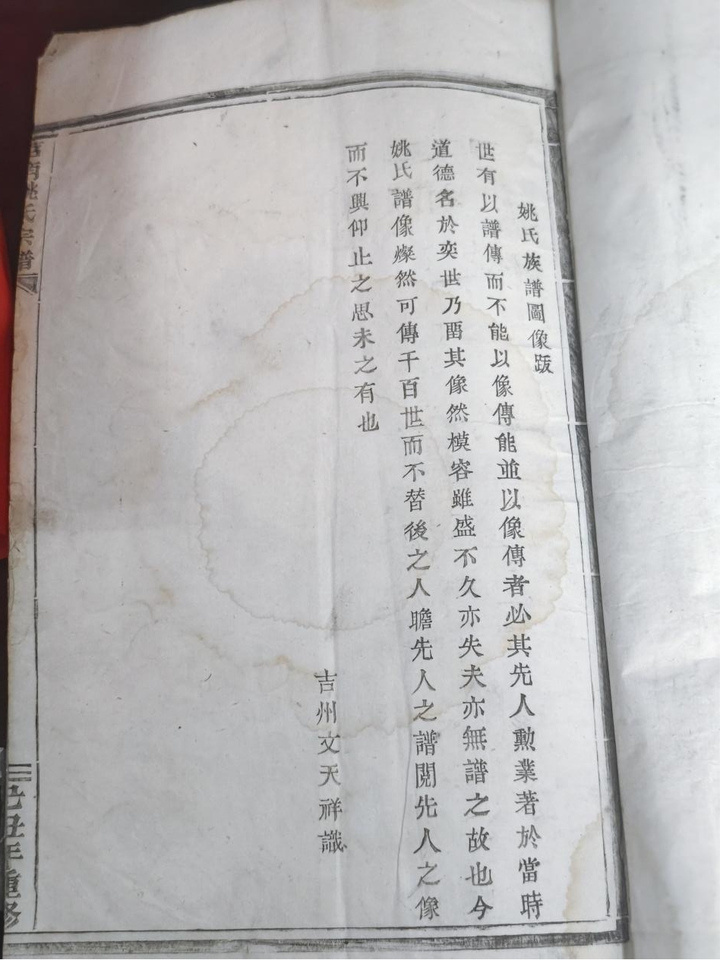 姚氏族譜圖像跋
世有以譜傳而不能以像傳能並以像傳者必其先人勲業著於當時
道德名於奕世乃畱其像然模容雖盛不久亦失夫亦無譜之故也今
姚氏譜像燦然可傳千百世而不替後之人瞻先人之譜閱先人之像
而不興仰止之思未之有也
吉州文天祥識
姚氏宗譜
丑年重修